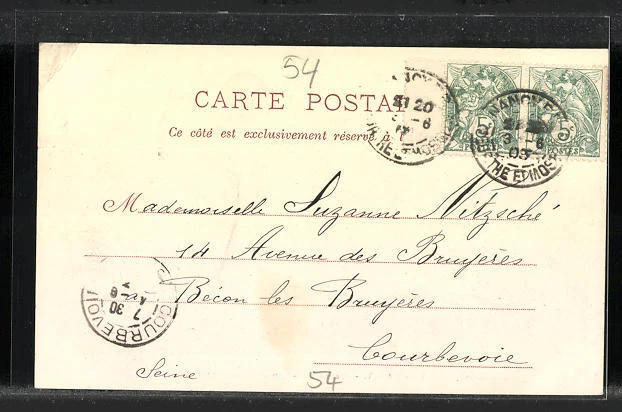 54
CARTE POSTALE
Ce côté est exclusivement réservé à l'
5 5
POSTES
NANCY
20
3 -6
03
Mademoiselle Suzanne Nitzsché
14 Avenue des Bruyères
à Bécon les Bruyères
Courbevoie
Seine
54
COURBEVOI
7 30
4 -6